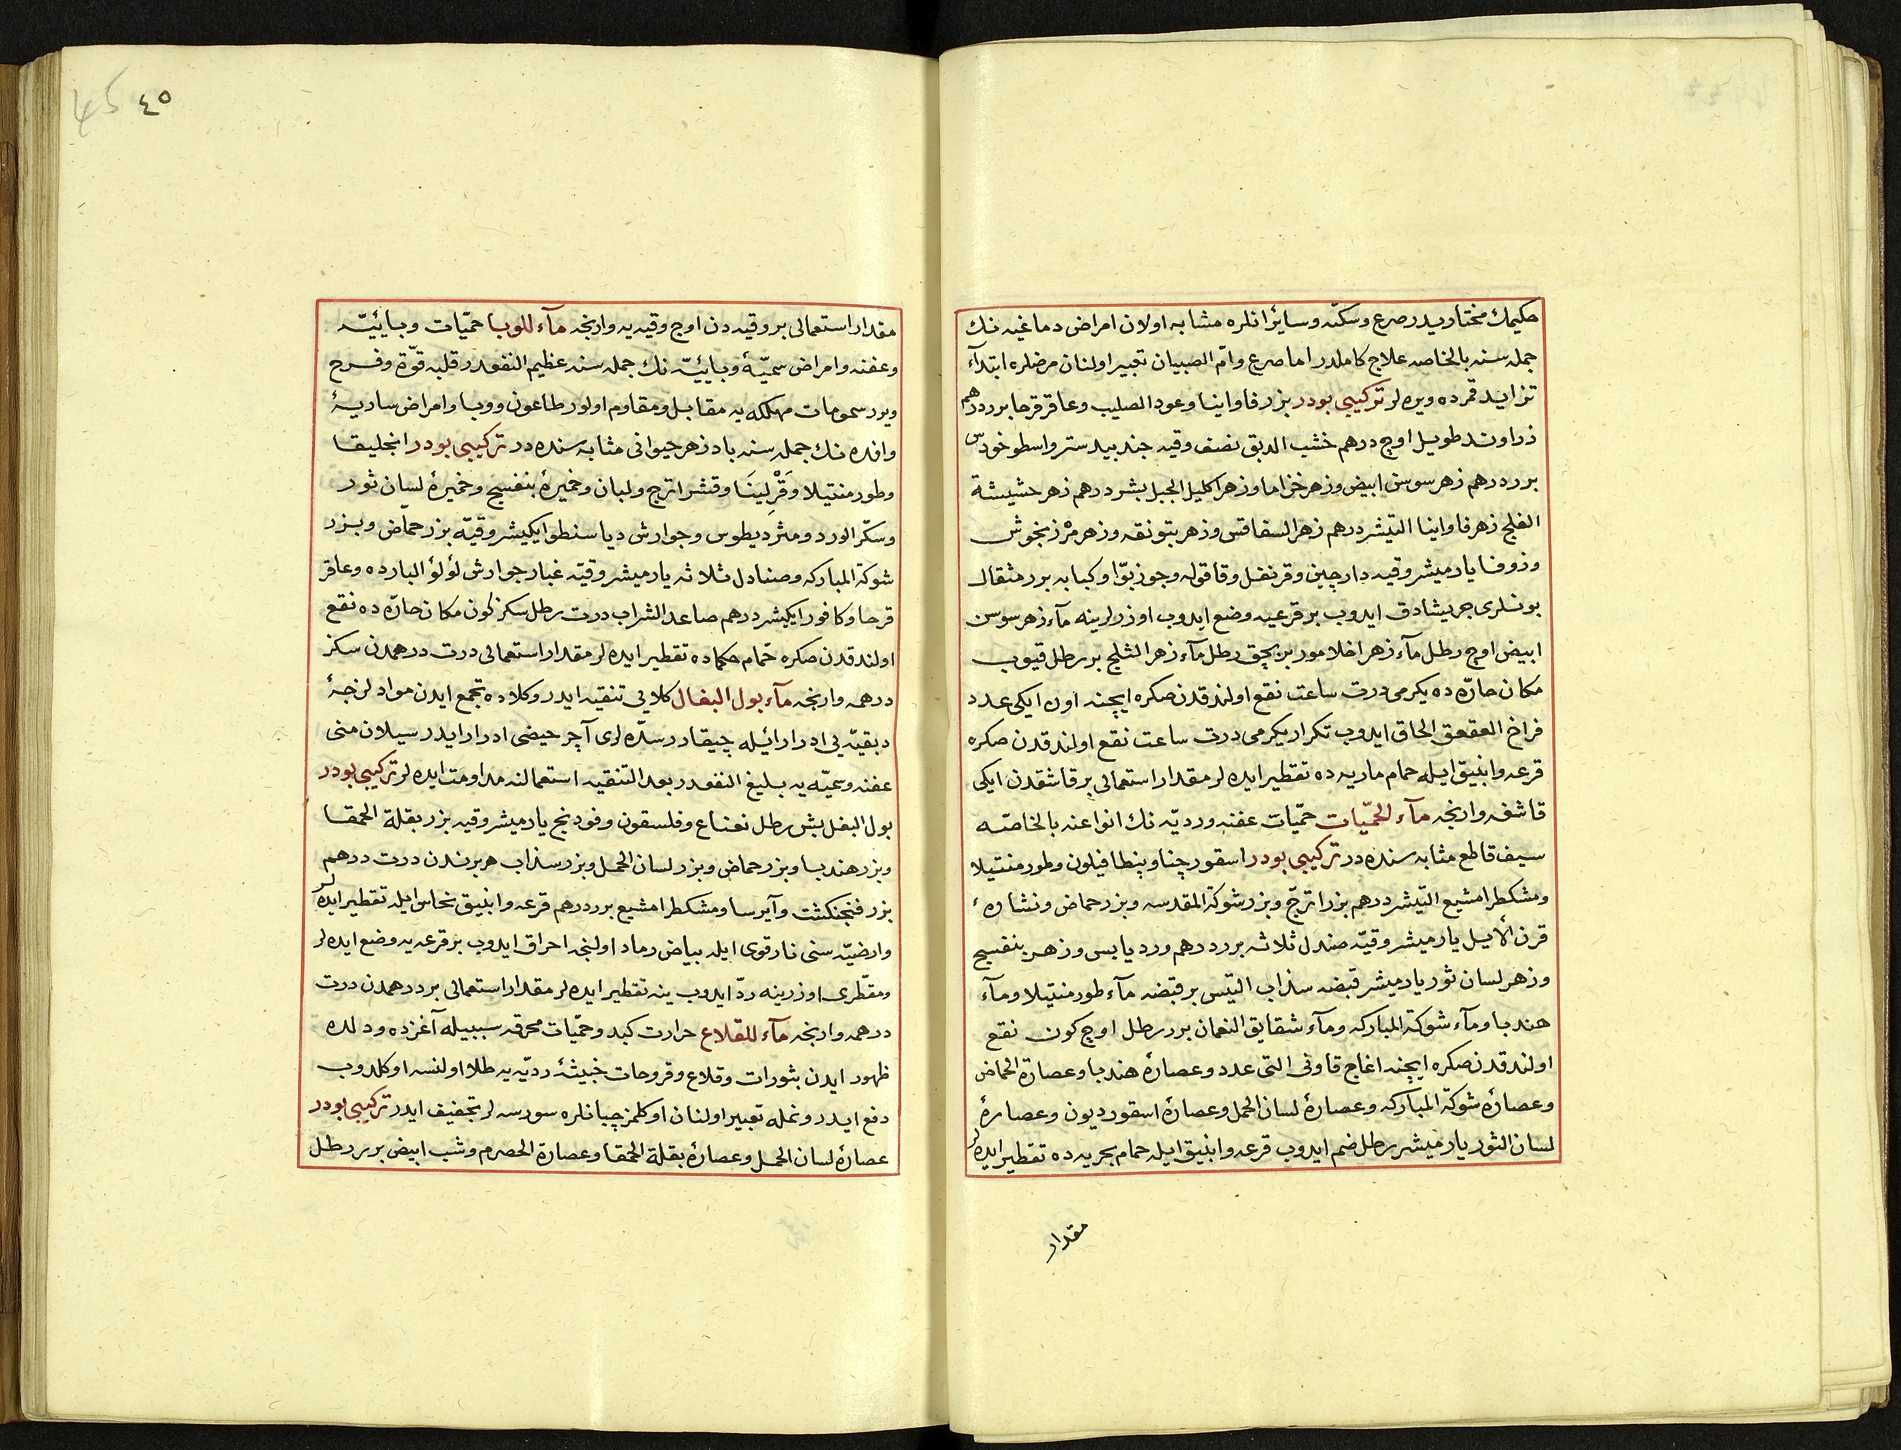 حكيمك مختاريدر صرع و سكته و سائر انلره مشابه اولان امراض دماغيه نك
جمله سنه بالخاصه علاج كاملدر اما صرع وامّ الصبيان تعبير اولنان مرضلره ابتدآء
تزايد قمرده ويره لر تركيبى بودر بزر فاوانيا وعود الصليب وعاقرقرحا بررد رهم
زراوند طويل اوچ درهم خشب الدبق نصف وقيه جند بيدستر واسطوخودس
برر درهم زهر سوسن ابيض وزهر خزاما وزهر اكليل الجبل بشر درهم زهر حشيشة
الفلج زهر فاوانيا التيشر درهم زهر السفاقس وزهر بتونقه وزهر مرزنجوش
وزوفا يارميشر وقيه دارچين وقرنفل وقاقوله وجوز بوّا وكبابه برر مثقال
بونلرى جريشا دق ايدوب بر قرعيه وضع ايدوب اوزرلرينه مآء زهر سوسن
ابيض اوچ رطل مآء زهر اخلامور بر بچق رطل مآء زهر الثلج بر رطل قيوب
مكان حارّه ده يكرمى درت ساعت نقع اولندقدن صكره ايچنه اون ايكى عدد
فراخ العقعق الحاق ايدوب تكرار يكرمى درت ساعت نقع اولندقدن صكره
قرعه وانبيق ايله حمام ماريه ده تقطير ايده لر مقدار استعمالى بر قاشقدن ايكى
قاشغه وارنجه مآء للحمّيات حمّيات عفنه ورديّه نك انواعنه بالخاصّه
سيف قاطع مثابه سنده در تركيبى بودر اسقورچنا وپنطافيلون وطورمنتيلا
ومشكطرامشيع التيشر درهم بزر اترجّ وبزر شوكة المقدسه وبزر حماض ونشاره ء
قرن الأيل يارميشر وقيّه صندل ثلاثه بررد درهم ورد يابس وزهر بنفسج
وزهر لسان ثور يارميشر قبضه سذاب التيس بر قبضه مآء طورمنتيلا ومآء
هندبا ومآء شوكة المباركه ومآء شقايق النعمان برر رطل اوچ كون نقع
اولندقدن صكره ايچنه اغاج قاونى التى عدد وعصارهٔ هندبا وعصارة الحماض
وعصارهٔ شوكة المباركه وعصارهٔ لسان الحمل وعصارهٔ اسقورديون وعصارهٔ
لسان الثور يارميشر رطل ضم ايدوب قرعه وانبيق ايله حمام بحريه ده تقطير ايده لر
مقدار
45 ٤٥
مقدار استعمالى بر وقيه دن اوچ وقيه يه وارنجه مآء للوبا حميّات وبائيّه
وعفنه وامراض سميّهٔ وبائيّه نك جمله سنه عظيم النفعدر قلبه قوّة وفرح
ويرر سمومات مهلكه يه مقابل ومقاوم اولور طاعون ووبا وامراض ساريهٔ
وافده نك جمله سنه بادزهر حيوانى مثابه سنده در تركيبى بودر انجليقا
وطورمنتيلا وقرلينا وقشر اترج ولبان وخميرهٔ بنفسج وخميرهٔ لسان ثور
وسكّر الورد ومثرديطوس وجوارش دياسنطو ايكيشر وقيّه بزر حمّاض وبزر
شوكة المباركه وصنادل ثلاثه يارميشر وقيّه غبار جوارش لؤلؤ البارده وعاقر
قرحا وكافور ايكيشر درهم صاعد الشراب درت رطل سكز كون مكان حارّه ده نقع
اولندقدن صكره حمّام حكماده تقطير ايده لر مقدار استعمالى درت درهمدن سكز
درهمه وارنجه مآء بول البغال كلايى تنقيه ايدر وكلاده تجمع ايدن مواد لزجهٔ
دبقيّه يى ادرار ايله چيقادر سدّه لرى آچر حيضى ادرار ايدر سيلان منى
عفنه وعميّه يه بليغ النفعدر بعد التنقيه استعمالنه مداومت ايده لر تركيبى بودر
بول البغل بش رطل نعناع وفلسقون وفودنج يارميشر وقيه بزر بقلة الحمقا
وبزر هندبا وبزر حماض وبزر لسان الحمل وبزر سذاب هر برندن درت درهم
بزر فنجنكشت وآيرسا ومشكطرامشيع بررد درهم قرعه وانبيق نحاس ايله تقطير ايده لر
وارضيّه سنى نار قوى ايله بياض رماد اولنجه احراق ايدوب بر قرعه يه وضع ايده لر
ومقطّرى اوزرينه ردّ ايدوب ينه تقطير ايده لر مقدار استعمالى بر درهمدن درت
درهمه وارنجه مآء للقلاع حرارت كبد وحمّيات محرقه سببيله آغزده ودلده
ظهور ايدن بثورات وقلاع وقروحات خبيثهٔ رديّه يه طلا اولنسه اوكلدوب
دفع ايدر ونمله تعبير اولنان اوكلمز چبانلره سورسه لر تجفيف ايدر تركيبى بودر
عصارهٔ لسان الحمل وعصارهٔ بقلة الحمقا وعصارة الحصرم وشب ابيض برر رطل